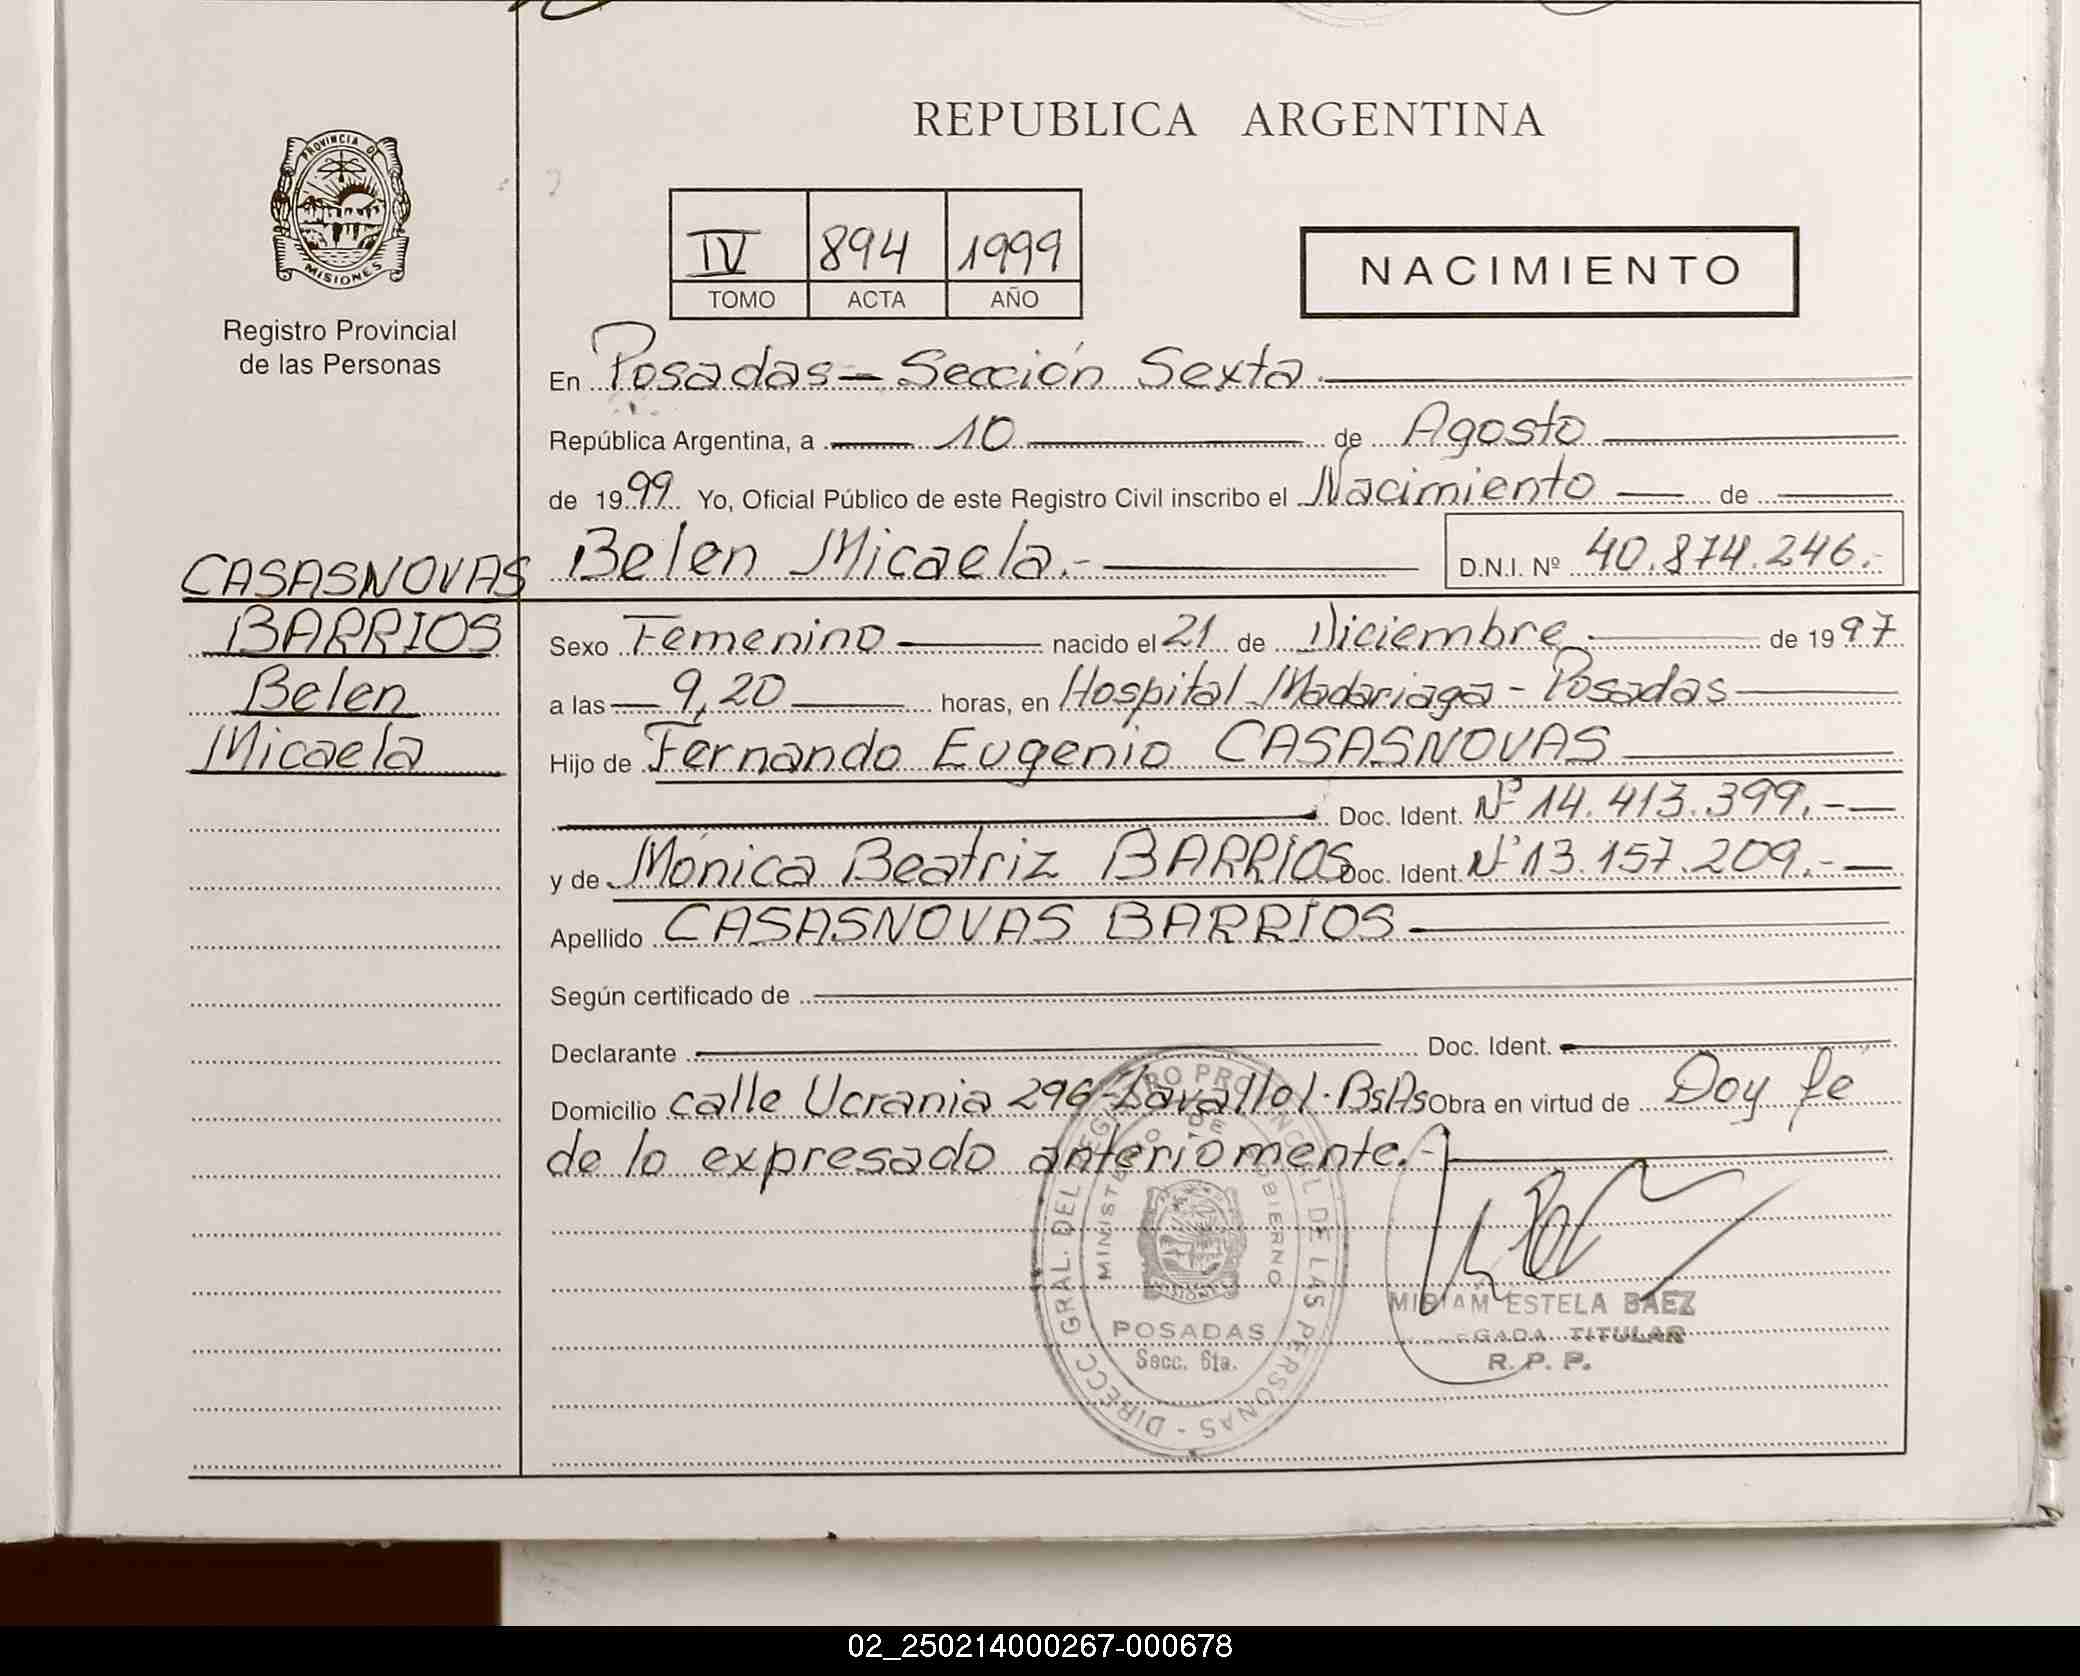 REPUBLICA ARGENTINA
PROVINCIA DE
MISIONES
Registro Provincial
de las Personas
IV 894 1999
TOMO ACTA AÑO
NACIMIENTO
En Posadas - Sección Sexta.
República Argentina, a 10 de Agosto
de 1999 Yo, Oficial Público de este Registro Civil inscribo el Nacimiento de
CASASNOVAS
BARRIOS
Belen
Micaela
Belen Micaela.- D.N.I. Nº 40.874.246.-
Sexo Femenino nacido el 21 de Diciembre de 1997
a las 9,20 horas, en Hospital Madariaga - Posadas
Hijo de Fernando Eugenio CASASNOVAS
Doc. Ident. Nº 14.413.399.-
y de Mónica Beatriz BARRIOS Doc. Ident. Nº 13.157.209.-
Apellido CASASNOVAS BARRIOS
Según certificado de
Declarante Doc. Ident.
Domicilio calle Ucrania 296-Lavallol.BsAs Obra en virtud de Doy fe
de lo expresado anteriomente.-
DIRECC GRAL. DEL REGISTRO PROVINCIAL DE LAS PERSONAS -
MINISTERIO DE GOBIERNO
MISIONES
POSADAS
Secc. 6ta.
MIRIAM ESTELA BAEZ
DELEGADA TITULAR
R. P. P.
02_250214000267-000678